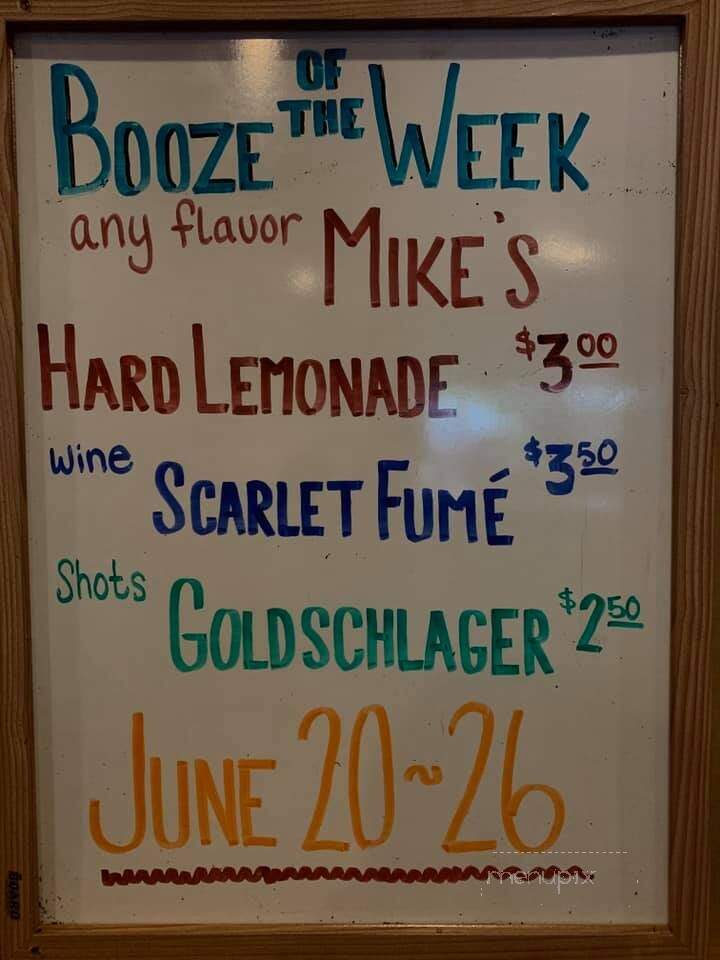 BOOZE OF THE WEEK
any flavor MIKE'S
HARD LEMONADE $3.00
wine SCARLET FUMÉ $3.50
Shots GOLDSCHLAGER $2.50
JUNE 20~26
menupix
BOARD